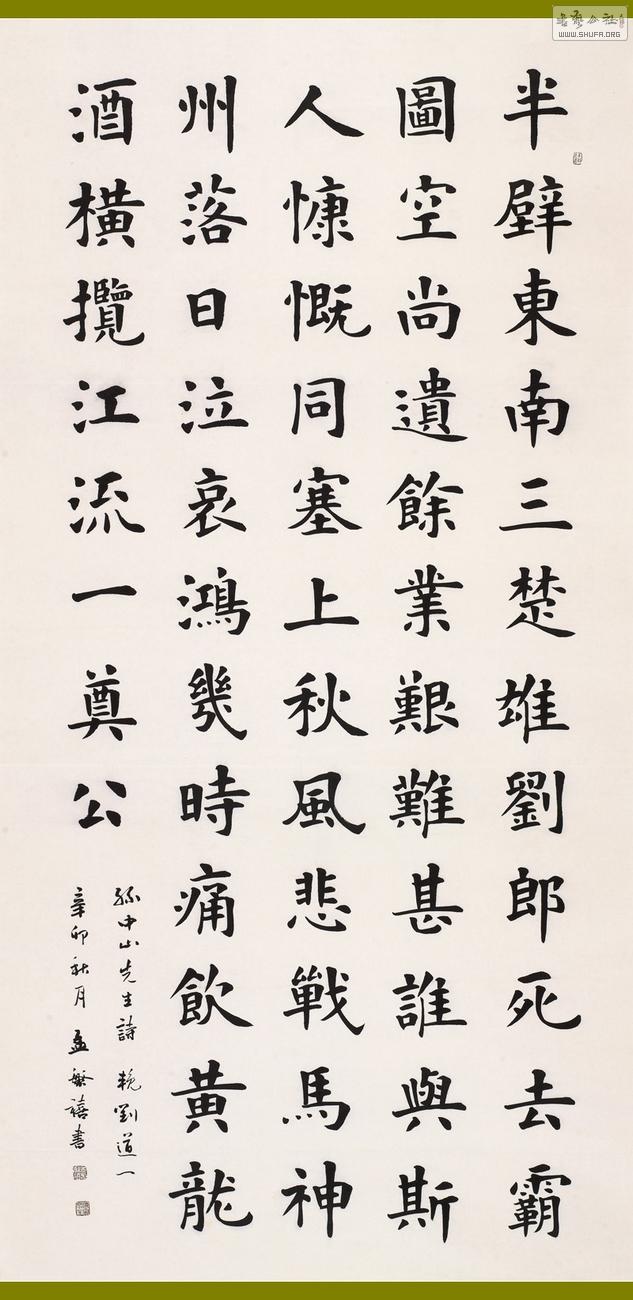 半壁東南三楚雄劉郎死去霸
圖空尚遺餘業艱難甚誰與斯
人慷慨同塞上秋風悲戰馬神
州落日泣哀鴻幾時痛飲黃龍
酒橫攬江流一奠公
孫中山先生詩 輓劉道一
辛卯秋月 孟繁禧書
WWW.SHUFA.ORG